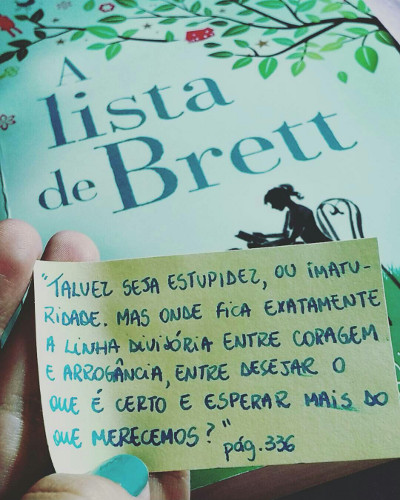 A
lista
de Brett
"TALVEZ SEJA ESTUPIDEZ, OU IMATU-
RIDADE. MAS ONDE FICA EXATAMENTE
A LINHA DIVISÓRIA ENTRE CORAGEM
E ARROGÂNCIA, ENTRE DESEJAR O
QUE É CERTO E ESPERAR MAIS DO
QUE MERECEMOS?"
pág.336